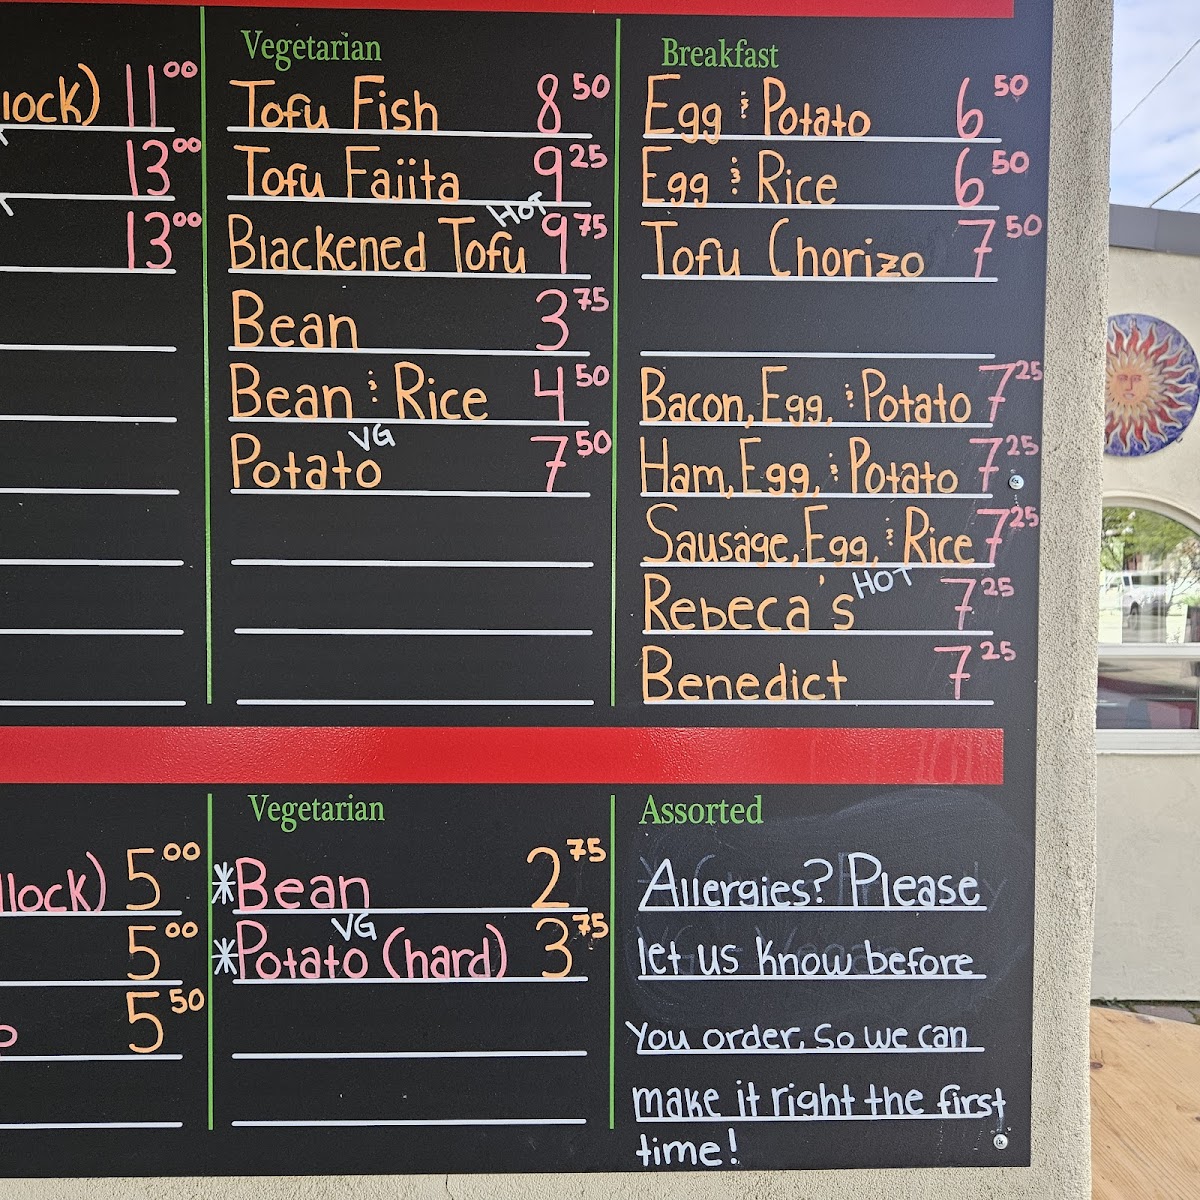 lock) 11 00
13 00
13 00
Vegetarian
Tofu Fish 8 50
Tofu Fajita 9 25
HOT
Blackened Tofu 9 75
Bean 3 75
Bean & Rice 4 50
VG
Potato 7 50
Breakfast
Egg & Potato 6 50
Egg & Rice 6 50
Tofu Chorizo 7 50
Bacon, Egg, & Potato 7 25
Ham, Egg, & Potato 7 25
Sausage, Egg, & Rice 7 25
HOT
Rebeca's 7 25
Benedict 7 25
llock) 5 00
5 00
5 50
Vegetarian
*Bean 2 75
VG
*Potato (hard) 3 75
Assorted
Allergies? Please
let us know before
you order, so we can
make it right the first
time!